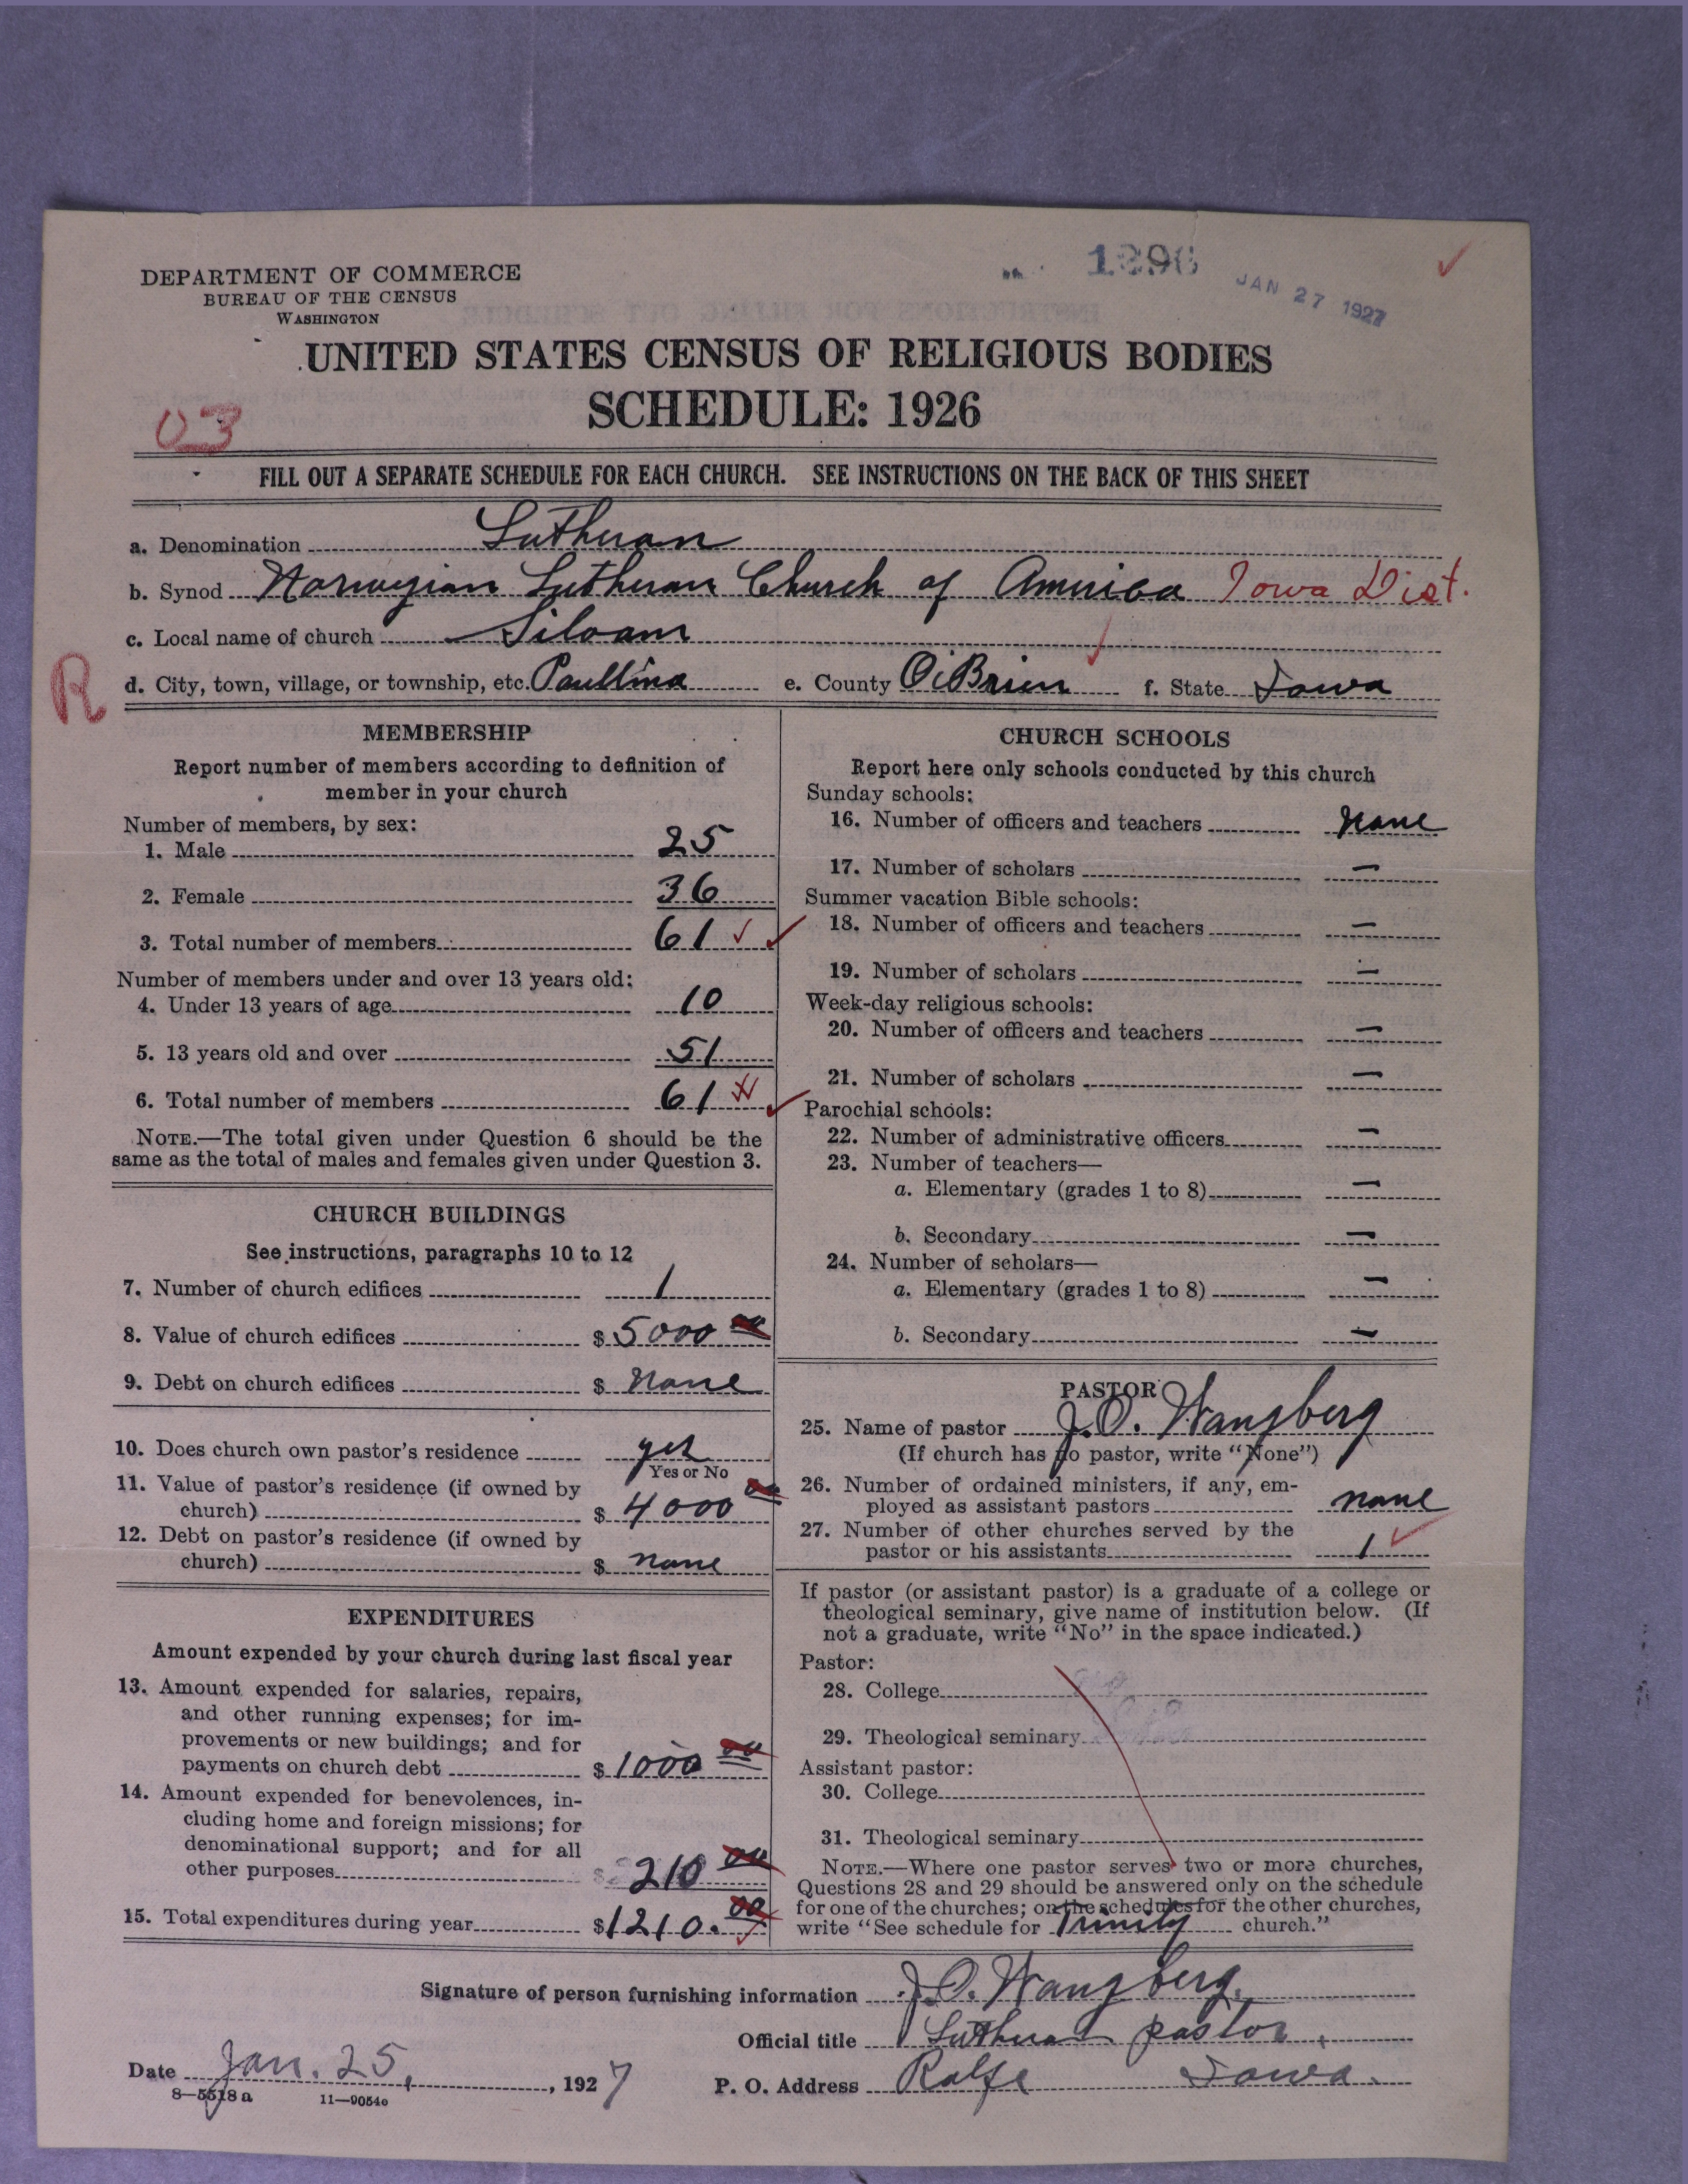 1296
JAN 27 1927
DEPARTMENT OF COMMERCE
BUREAU OF THE CENSUS
WASHINGTON
UNITED STATES CENSUS OF RELIGIOUS BODIES
SCHEDULE: 1926
03
FILL OUT A SEPARATE SCHEDULE FOR EACH CHURCH. SEE INSTRUCTIONS ON THE BACK OF THIS SHEET
a. Denomination Lutheran
b. Synod Norwegian Lutheran Church of America Iowa Dist.
c. Local name of church Siloam
R
d. City, town, village, or township, etc. Paullina e. County O'Brien f. State Iowa
MEMBERSHIP
Report number of members according to definition of
member in your church
Number of members, by sex:
1. Male 25
2. Female 36
3. Total number of members 61
Number of members under and over 13 years old:
4. Under 13 years of age 10
5. 13 years old and over 51
6. Total number of members 61
NOTE.—The total given under Question 6 should be the
same as the total of males and females given under Question 3.
CHURCH BUILDINGS
See instructions, paragraphs 10 to 12
7. Number of church edifices 1
8. Value of church edifices $ 5000 00
9. Debt on church edifices $ None
10. Does church own pastor's residence yes
Yes or No
11. Value of pastor's residence (if owned by
church) $ 4000 00
12. Debt on pastor's residence (if owned by
church) $ none
EXPENDITURES
Amount expended by your church during last fiscal year
13. Amount expended for salaries, repairs,
and other running expenses; for im-
provements or new buildings; and for
payments on church debt $ 1000 00
14. Amount expended for benevolences, in-
cluding home and foreign missions; for
denominational support; and for all
other purposes $ 210 00
15. Total expenditures during year $ 1210. 00
CHURCH SCHOOLS
Report here only schools conducted by this church
Sunday schools:
16. Number of officers and teachers None
17. Number of scholars —
Summer vacation Bible schools:
18. Number of officers and teachers —
19. Number of scholars —
Week-day religious schools:
20. Number of officers and teachers —
21. Number of scholars —
Parochial schools:
22. Number of administrative officers —
23. Number of teachers—
a. Elementary (grades 1 to 8) —
b. Secondary —
24. Number of scholars—
a. Elementary (grades 1 to 8) —
b. Secondary —
PASTOR
25. Name of pastor J.O. Wangberg
(If church has no pastor, write "None")
26. Number of ordained ministers, if any, em-
ployed as assistant pastors none
27. Number of other churches served by the
pastor or his assistants 1
If pastor (or assistant pastor) is a graduate of a college or
theological seminary, give name of institution below. (If
not a graduate, write "No" in the space indicated.)
Pastor:
28. College
29. Theological seminary
Assistant pastor:
30. College
31. Theological seminary
NOTE.—Where one pastor serves two or more churches,
Questions 28 and 29 should be answered only on the schedule
for one of the churches; on the schedules for the other churches,
write "See schedule for Trinity church."
Signature of person furnishing information J.O. Wangberg.
Official title Lutheran pastor.
Date Jan. 25, 1927
P. O. Address Rolfe Iowa.
8—5518 a 11—9054e